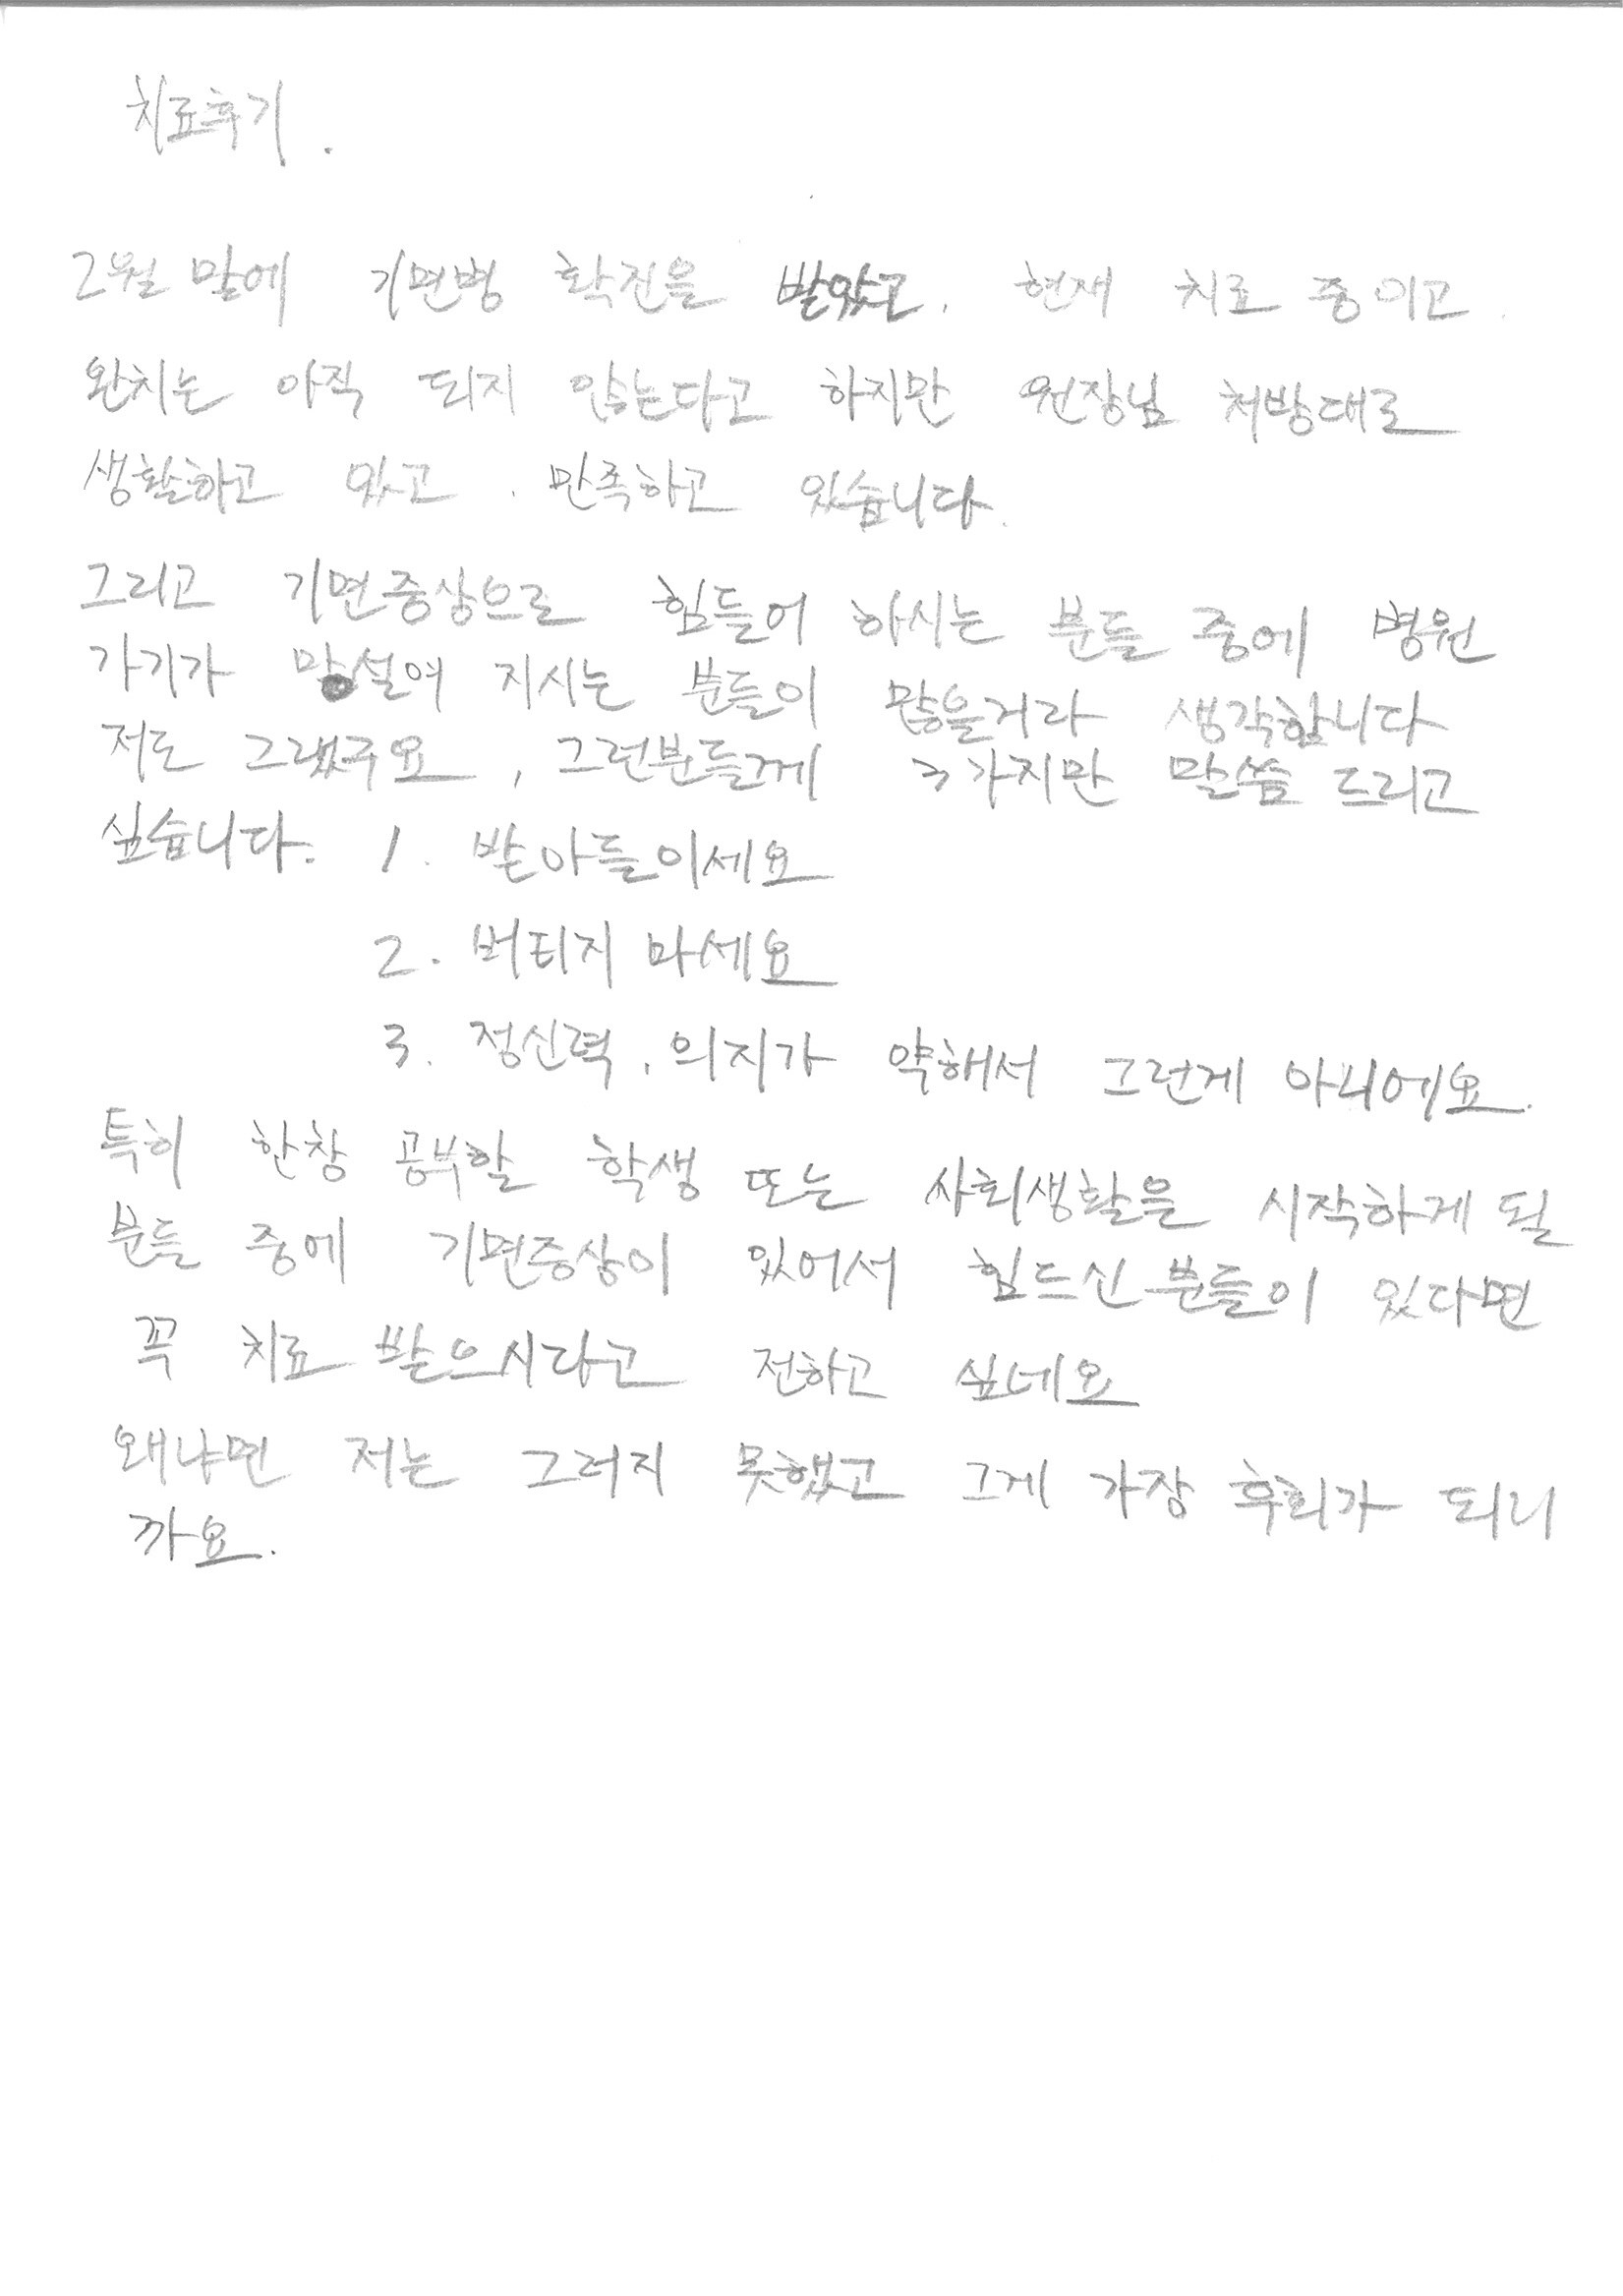 치료후기.
2월 말에 기면병 확진을 받았고, 현재 치료 중이고.
완치는 아직 되지 않는다고 하지만 원장님 처방대로
생활하고 있고, 만족하고 있습니다.
그리고 기면증상으로 힘들어 하시는 분들 중에 병원
가기가 망설여 지시는 분들이 많을거라 생각합니다
저도 그랬구요, 그런분들께 3가지만 말씀 드리고
싶습니다. 1. 받아들이세요
2. 버티지 마세요
3. 정신력, 의지가 약해서 그런게 아니에요.
특히 한창 공부할 학생 또는 사회생활을 시작하게 될
분들 중에 기면증상이 있어서 힘드신분들이 있다면
꼭 치료 받으시라고 전하고 싶네요
왜냐면 저는 그러지 못했고 그게 가장 후회가 되니
까요.